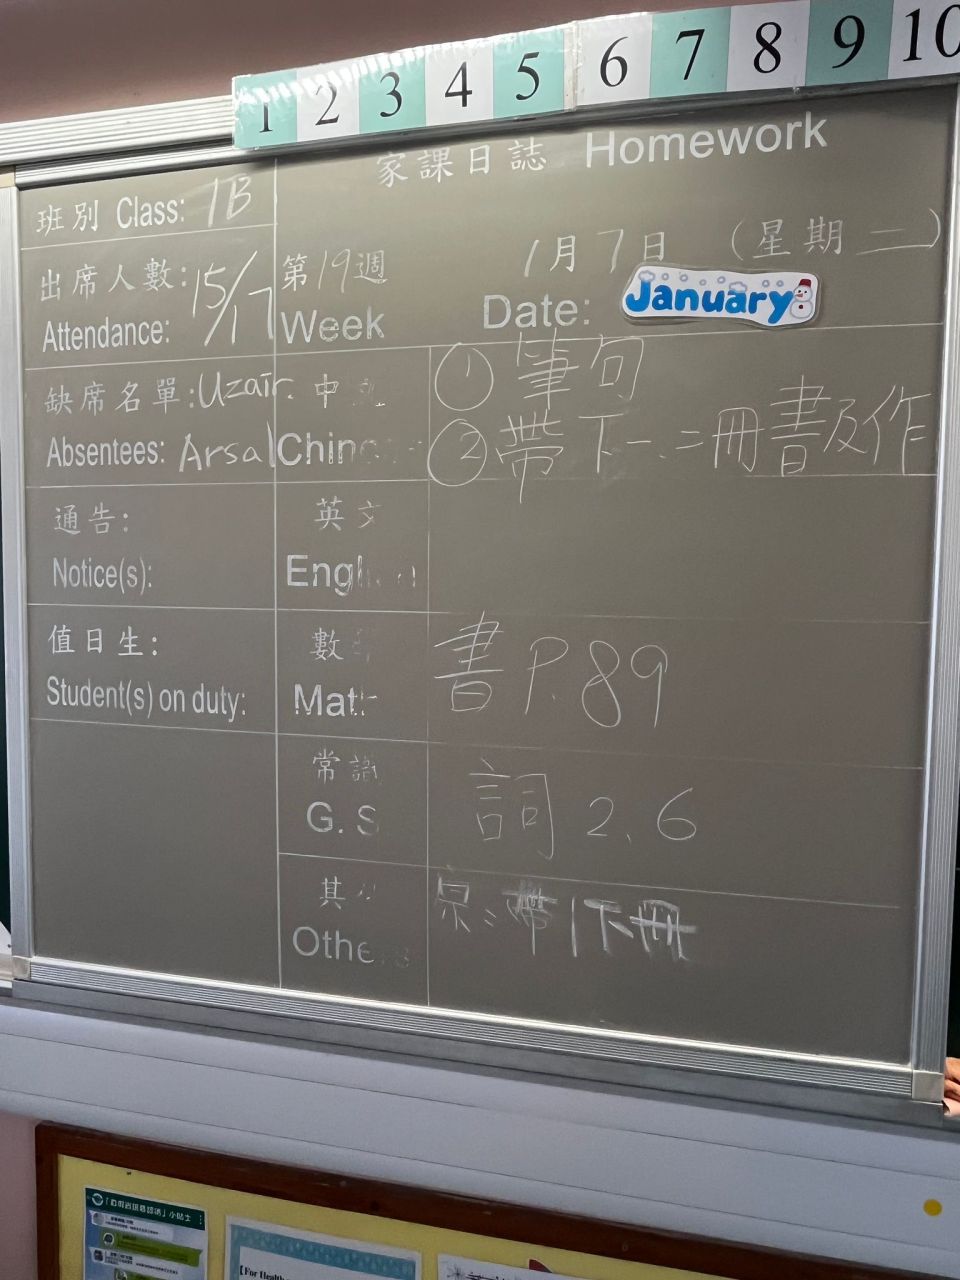 1 2 3 4 5 6 7 8 9 10
家課日誌 Homework
班別 Class: 1B
出席人數: 15/17
Attendance:
第19週
Week
1月7日 (星期二)
Date: January
缺席名單: Uzair.
Absentees: Arsal
中
Chin
① 筆句
② 帶下一、二冊書及作
通告:
Notice(s):
英文
Engl
值日生:
Student(s) on duty:
數
Mat
書 P.89
常識
G. S
詞 2、6
其
Others
帶1下冊